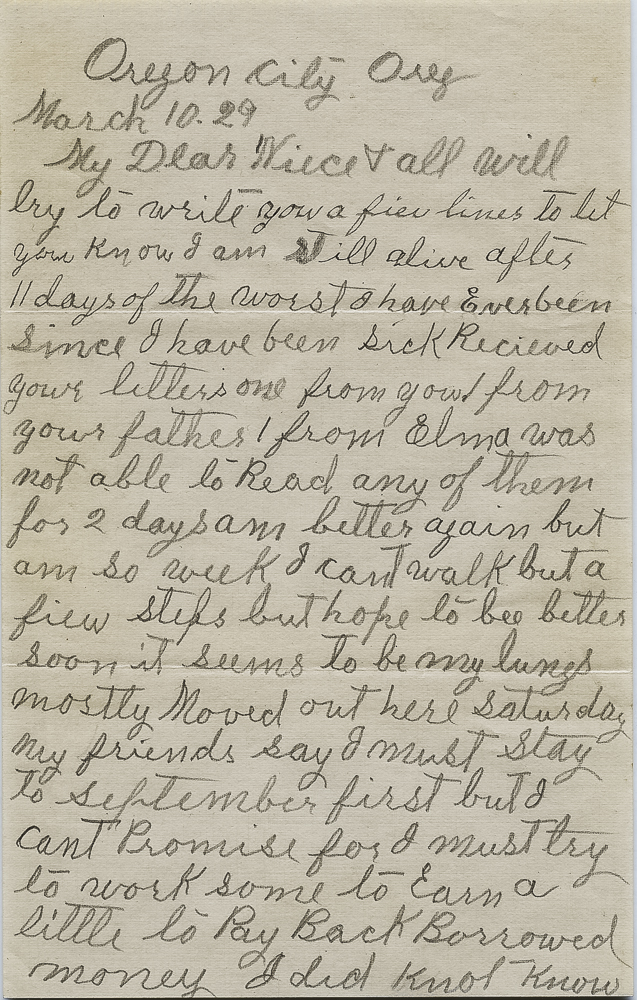 Oregon City Oreg
March 10-29
My Dear Niece & all will
try to write you a fiew lines to let
you know I am still alive after
11 days of the worst I have Ever been
since I have been sick Recieved
your letters one from you 1 from
your father 1 from Elma was
not able to Read any of them
for 2 days am better again but
am so week I cant walk but a
fiew steps but hope to bee better
soon it seems to be my lungs
mostly Moved out here Saturday
my friends say I must Stay
to september first but I
cant Promise for I must try
to work some to Earn a
little to Pay Back Borrowed
money I did knot know